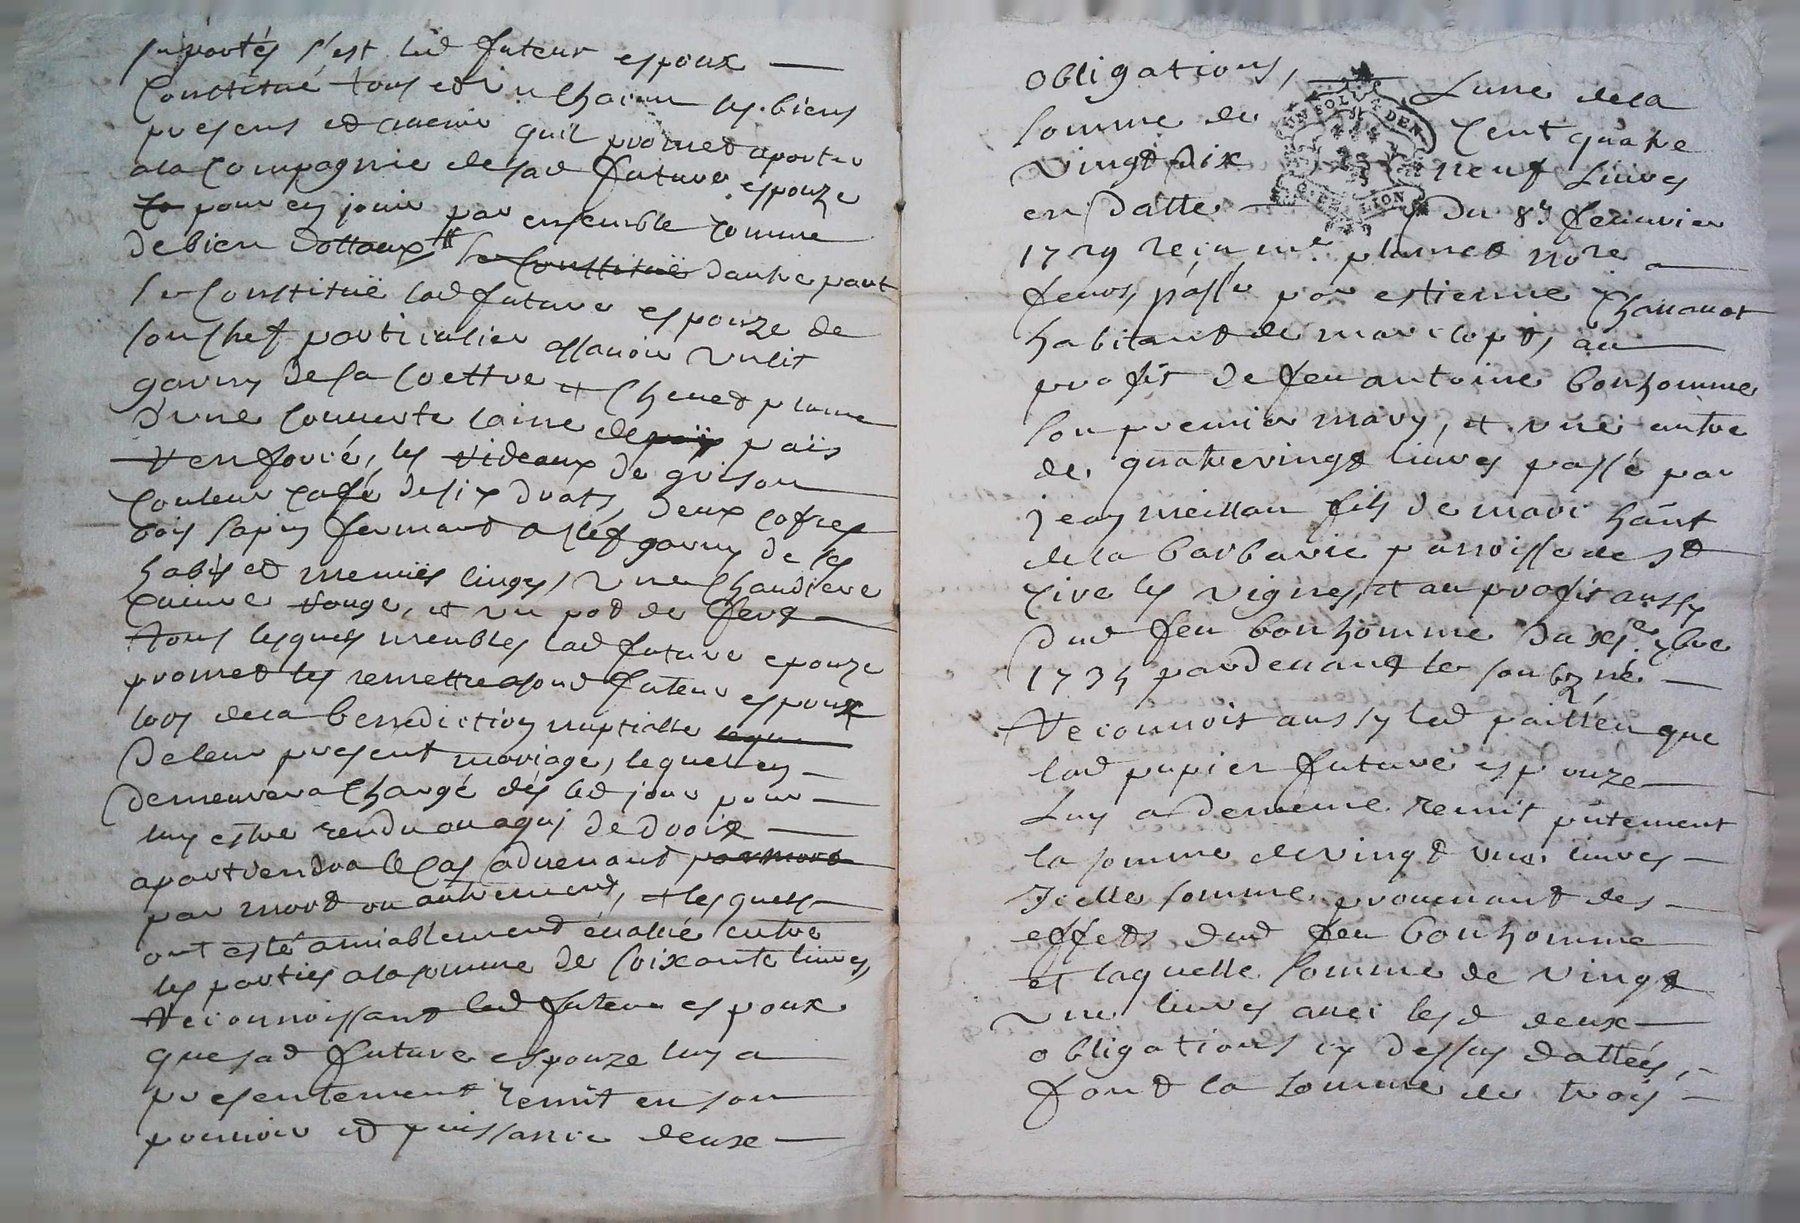 suportés s'est led futeur espoux
Constitué tous et un chacun ses biens
presens et avenir quil promet aporter
a la Compagnie de sad future espouze
pour en jouir par ensemble comme
de bien dottaux se Constitue dautre part
se Constitue lad future espouze de
son chef particulier assavoir un lit
garny de sa coettre et chevet plume
d'une couverte laine de païs
renforcé, les rideaux de grison
couleur café de six drats, deux cofres
bois sapin fermant a clef garny de ses
habis et menües linges, une chaudiere
cuivre rouge, et un pot de fert
tous lesquels meubles lad future epouze
promet les remettre a sond futeur espoux
lors de la benediction nuptialle
de leur present mariage, lequel en
demeurera chargé dés led jour pour
luy estre rendu ou a quy de droit
apartiendra le cas advenant par mort
par mort ou autrement, et lesquels
ont esté amiablement évalué entre
les parties a la somme de soixante livres,
Reconnoissant led futeur espoux
que sad future espouze luy a
presentement remit en son
pouvoir et puissance deux
obligations, Lune de la
somme de cent quatre
vingt dix neuf livres
en datte du 8e feuvrier
1729 receu me plunet nore
feurs, passé par estienne Chavanot
habitant de marclopt, au
profit de feu antoine bonhomme
son premier mary, et une autre
de quatrevingt livres passé par
jean meillan fils de marchant
de la barbarie parroisse de st
cire les vignes, et au profit aussy
dud feu bonhomme du xbre
1734 pardevant le soubzné
Reconnoit aussy led pailleu que
lad papier future espouze
Luy a dememe remit pntement
la somme de vingt une livres
Icelle somme provenant des
effets dud feu bonhomme
et laquelle somme de vingt
une livres avec lesd deux
obligations cy dessus dattées,
font la somme de trois